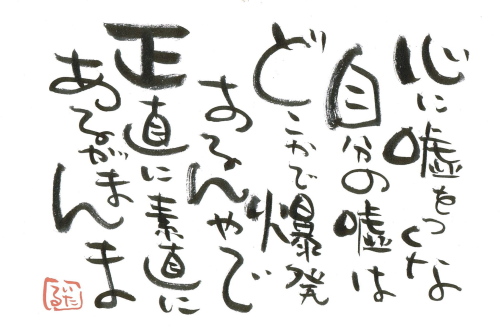 心に嘘をつくな
自分の嘘は
どこかで爆発
するんやで
正直に素直に
あるがまんま
いたる